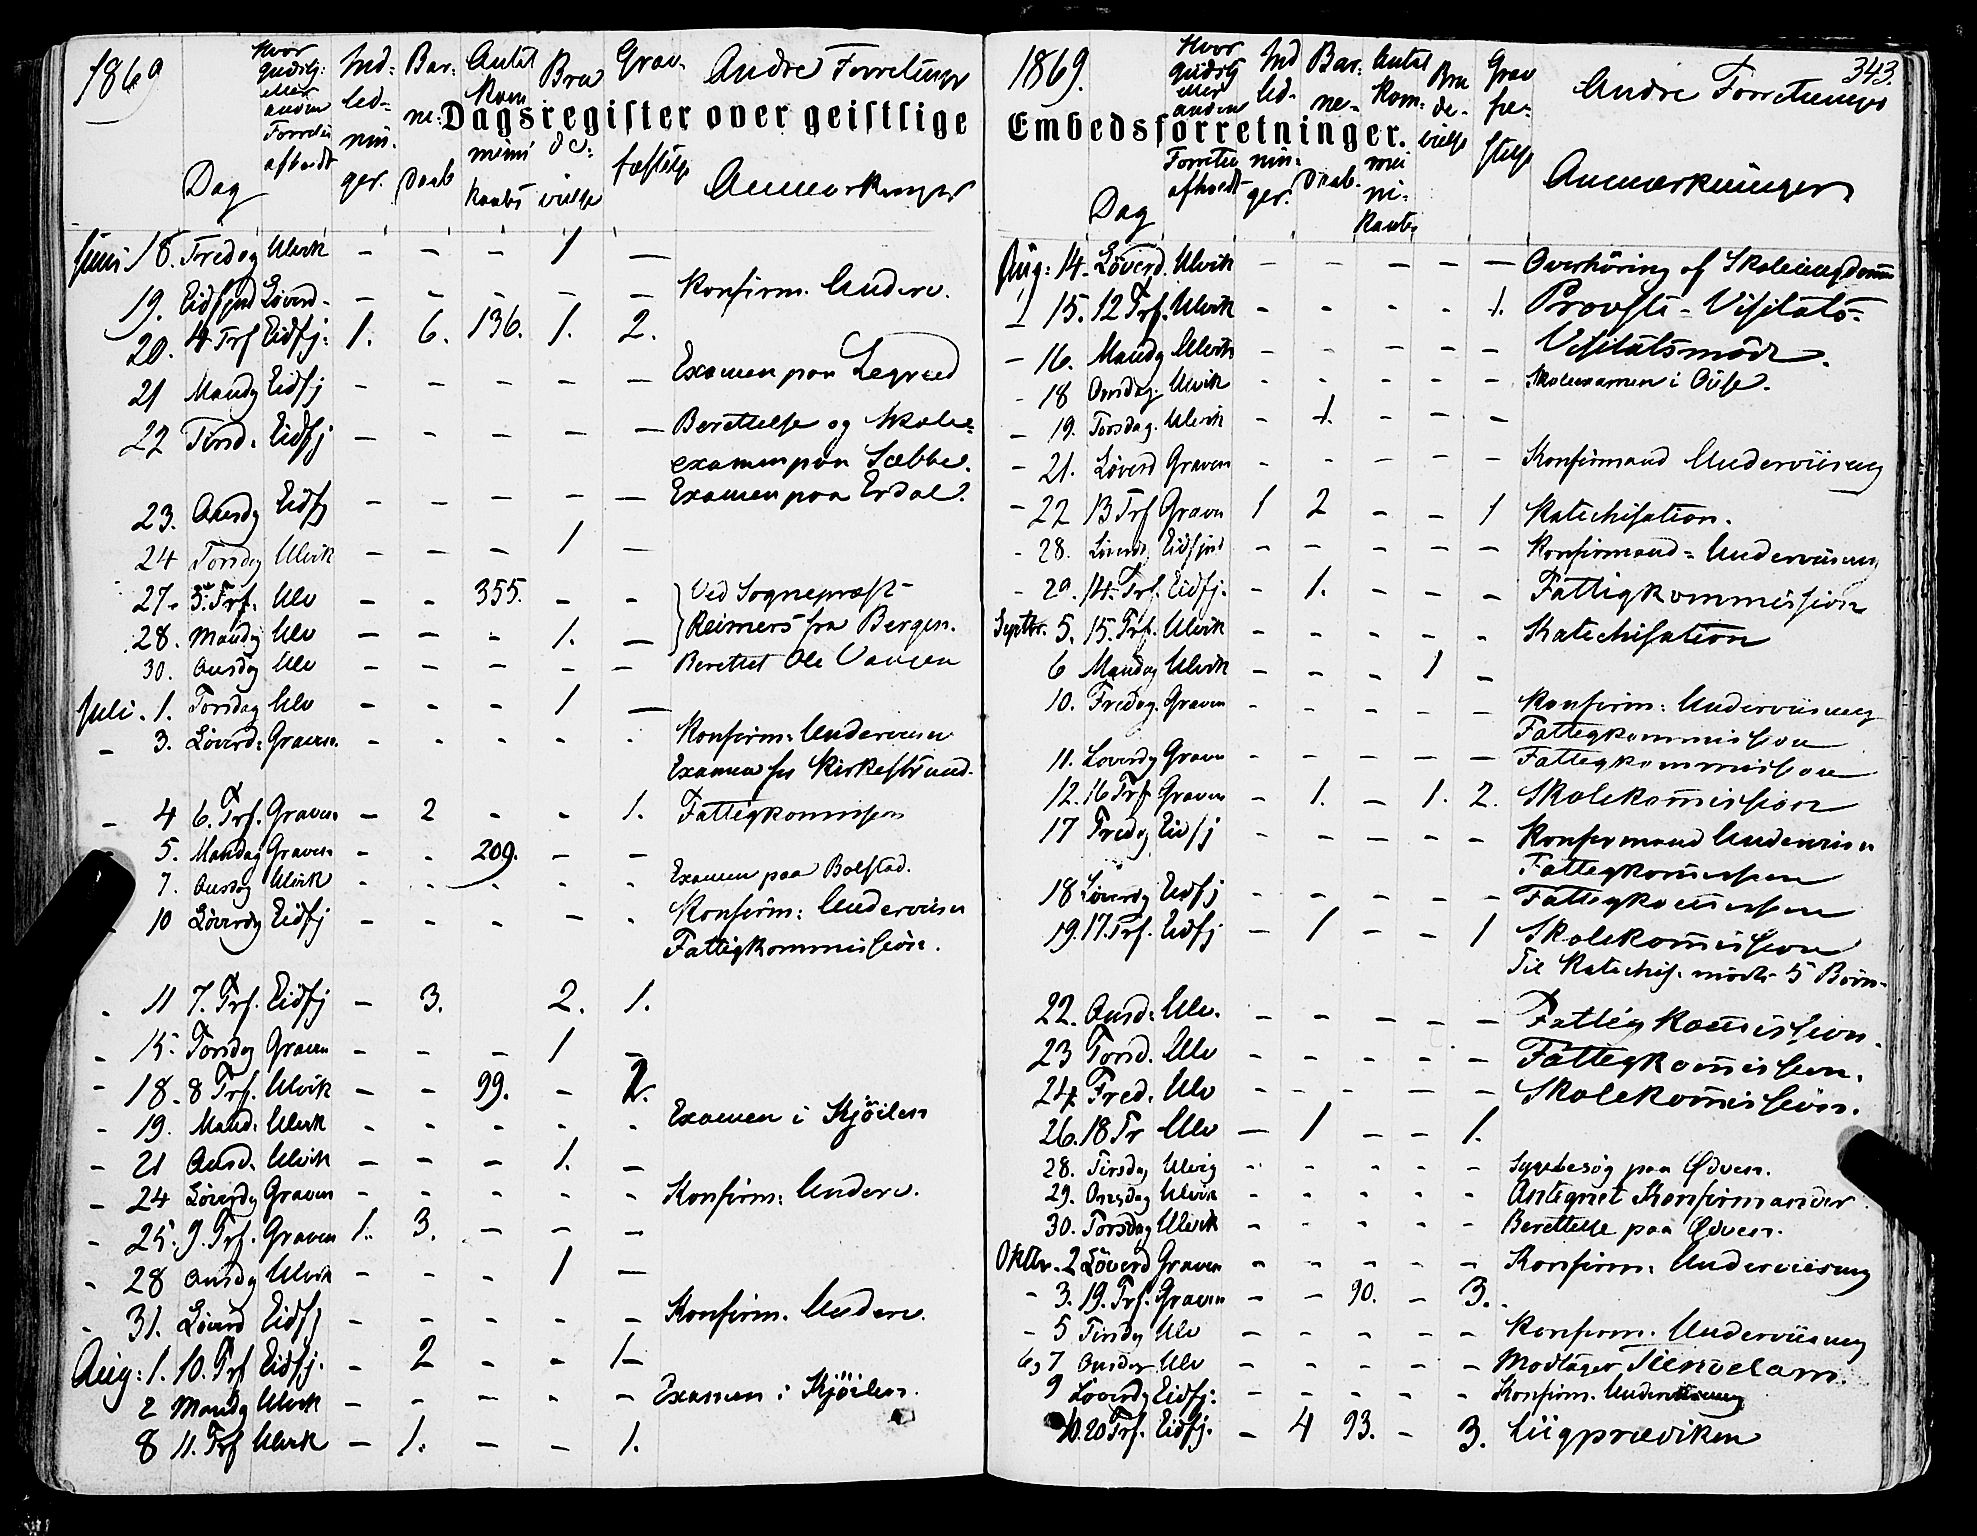 1869
Dagsregister over geistlige
Dag
Hvor Gudstj: eller anden Forretn afholdt
Ind-led-nin-ger.
Bar-ne-Daab
Antal Kommunikants
Bru de-vielse
Grav-fæstelse
Andre Forretninger
Anmærkninger
Juni 18. Fredag Ulvik - - - 1 -
19. Eidfjord Løverd. - - - - - Konfirm. Underv.
20. 4 Trf Eidfj: 1. 6. 136. 1. 2.
21 Mandg Eidfj - - - - - Examen paa Legreid
22 Tirsd. Eidfj - - - - - Berettelse og Skole-
examen paa Sæbbe.
23. Onsdg Eidfj - - - - - Examen paa Erdal.
24 Torsdg Ulvik - - - 1 -
27. 5. Trf. Ulv - - 355. - - Ved Sognepræst
28. Mandg Ulv - - - 1. - Reimers fra Bergen.
30. Onsdg Ulv - - - - - Berettet Ole
Juli. 1. Torsdag Ulv - - - 1 -
- 3. Løverd: Graven. - - - - - Konfirm: Underviisn
Examen for Kirkestrand.
- 4 6. Trf. Graven - 2 - - 1. Fattigkommission
5. Mandag Graven - - 209. - -
7. Onsdag Ulvik - - - - - Examen paa Bolstad.
10 Løverdg Eidfj - - - - - Konfirm: Underviisn
Fattigkommission.
- 11 7. Trf. Eidfj - 3. 2. 1.
- 15. Torsdag Graven - - - 1 -
- 18. 8 Trf. Ulvik - - 99. - 2.
- 19. Mand. Ulvik - - - - - Examen i Kjøilen
- 21 Onsd. Ulvik - - - 1. -
- 24 Løverdg Graven - - - - - Konfirm: Underv.
- 25. 9. Trf. Graven 1. 3. - - -
- 28 Onsdg Ulvik - - - 1 -
- 31. Løverd Eidfj - - - - - Konfirm. Underv.
Aug: 1. 10. Trf Eidfj. - 2 - - 1-
2 Mandg Ulvik - - - - - Examen i Kjøilen.
8 11. Trf Ulvik - 1. - - 1.
1869.
343.
Embedsforretninger.
Dag
Hvor Gudstj eller anden Forretn afholdt
Ind led-nin-ger.
Bar-ne-Daab.
Antal kom-mu-ni-kants
Bru de-vielse
Grav fæ-stelse
Andre Forretninger
Anmærkninger
Aug: 14. Løverd. Ulvik - - - - - Overhøring af Skoleungdomm
- 15. 12 Trf. Ulvik - - - - 1. Provsti-Visitats-
- 16. Mandg Ulvik - - - - - Visitatsmøde.
- 18 Onsdag. Ulvik - - - - - Skoleexamen i
- 19. Torsdag. Ulvik - 1. - - -
- 21. Løverd Graven - - - - - Konfirmand Underviisning
- 22 13 Trf Graven 1 2 - - 1 Katechisation.
- 28. Løverd. Eidfjord - - - - - Konfirmand-Underviisning
- 29. 14. Trf. Eidfj. - 1. - - - Fattigkommission
Septbr. 5. 15. Trf. Ulvik - - - - - Katechisation
6 Mandag Ulvik - - - 1 -
10. Fredag. Graven - - - - - Konfirm: Underviisning
Fattigkommission
11. Løverdg Graven - - - - - Fattigkommission
12. 16 Trf Graven - 1. - 1. 2. Skolekom̄ission
17 Fredg Eidfj - - - - - Konfirmand Underviisn
Fattigkom̄ission
18 Løverdg Eidfj - - - - - Fattigkom̄ission
19. 17. Trf. Eidfj - 1 - - 1 Skolekom̄ission
Til Katechis. mødte 5 Børn.
22. Onsd. Ulv. - - - - - Fattigkom̄ission.
23 Torsd. Ulv - - - - - Fattigkom̄ission.
24. Fred. Ulv - - - - - Skolekom̄ission.
26. 18 Tr Ulv - 1 - - 1.
28. Tirsdag Ulvig - - - - - Sygebesøg paa Ødven.
29. Onsdag Ulvik - - - - - Antegnet Konfirmander
30. Torsdag Ulvik - - - - - Berettelse paa Ødven.
Oktbr. 2 Løverd Graven - - - - - Konfirm: Underviisning
- 3. 19. Trf. Graven - - 90. - 3.
- 5 Tirsdg Ulv - - - - - Konfirm. Underviisning
6, 7 Onsdag Ulv - - - - - Modtager Tiendelam.
9 Løverdg Eidfj: - - - - - Konfirm. Underviisning
10. 20 Trf. Eidfj. - 4 93. - 3. Liigprædiken